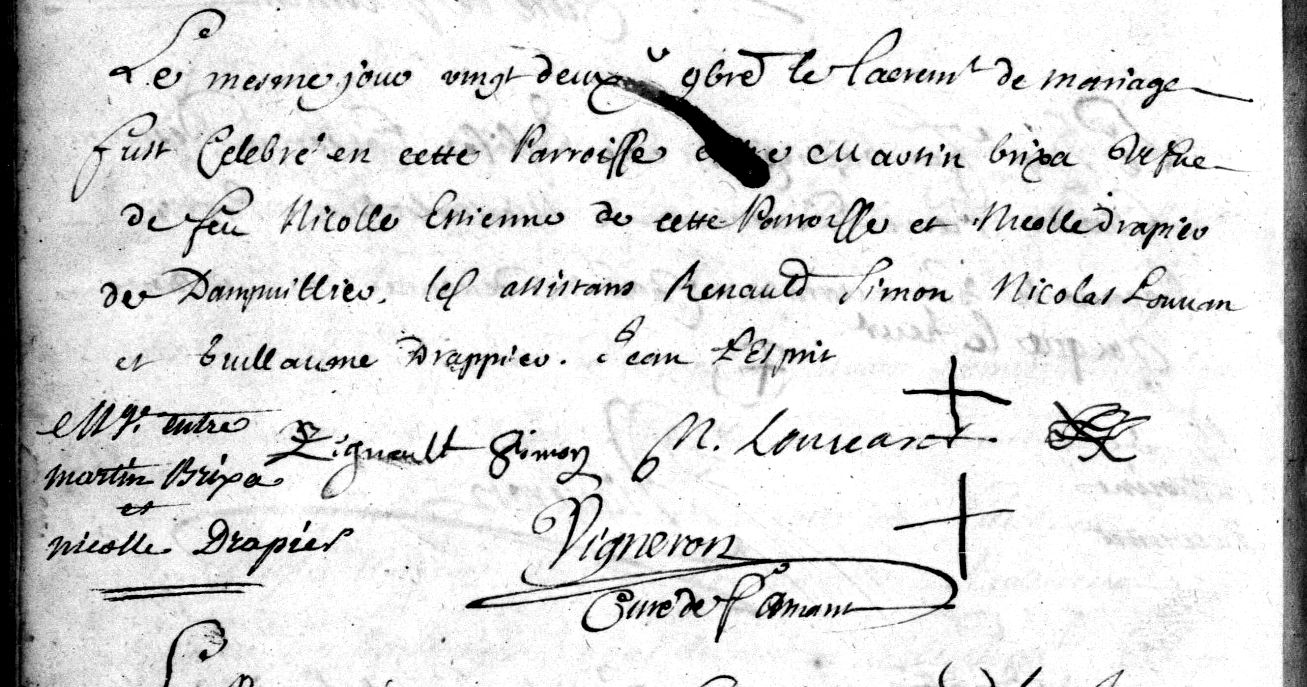 Le mesme jour vingt deux 9bre le sacremt de mariage
fust Celebré en cette Parroisse entre Martin brixa vefve
de feu Nicolle Estienne de cette Parroisse et Nicolle Drapier
de Dampvillier. les assistans Renauld Simon Nicolas Louvan
et Guillaume Drappier. Jean LEsprit
Mge. entre
martin Brixa
et
nicolle Drapier
Rignault Simon N. Louvean
Vigneron
Curé de St Amant